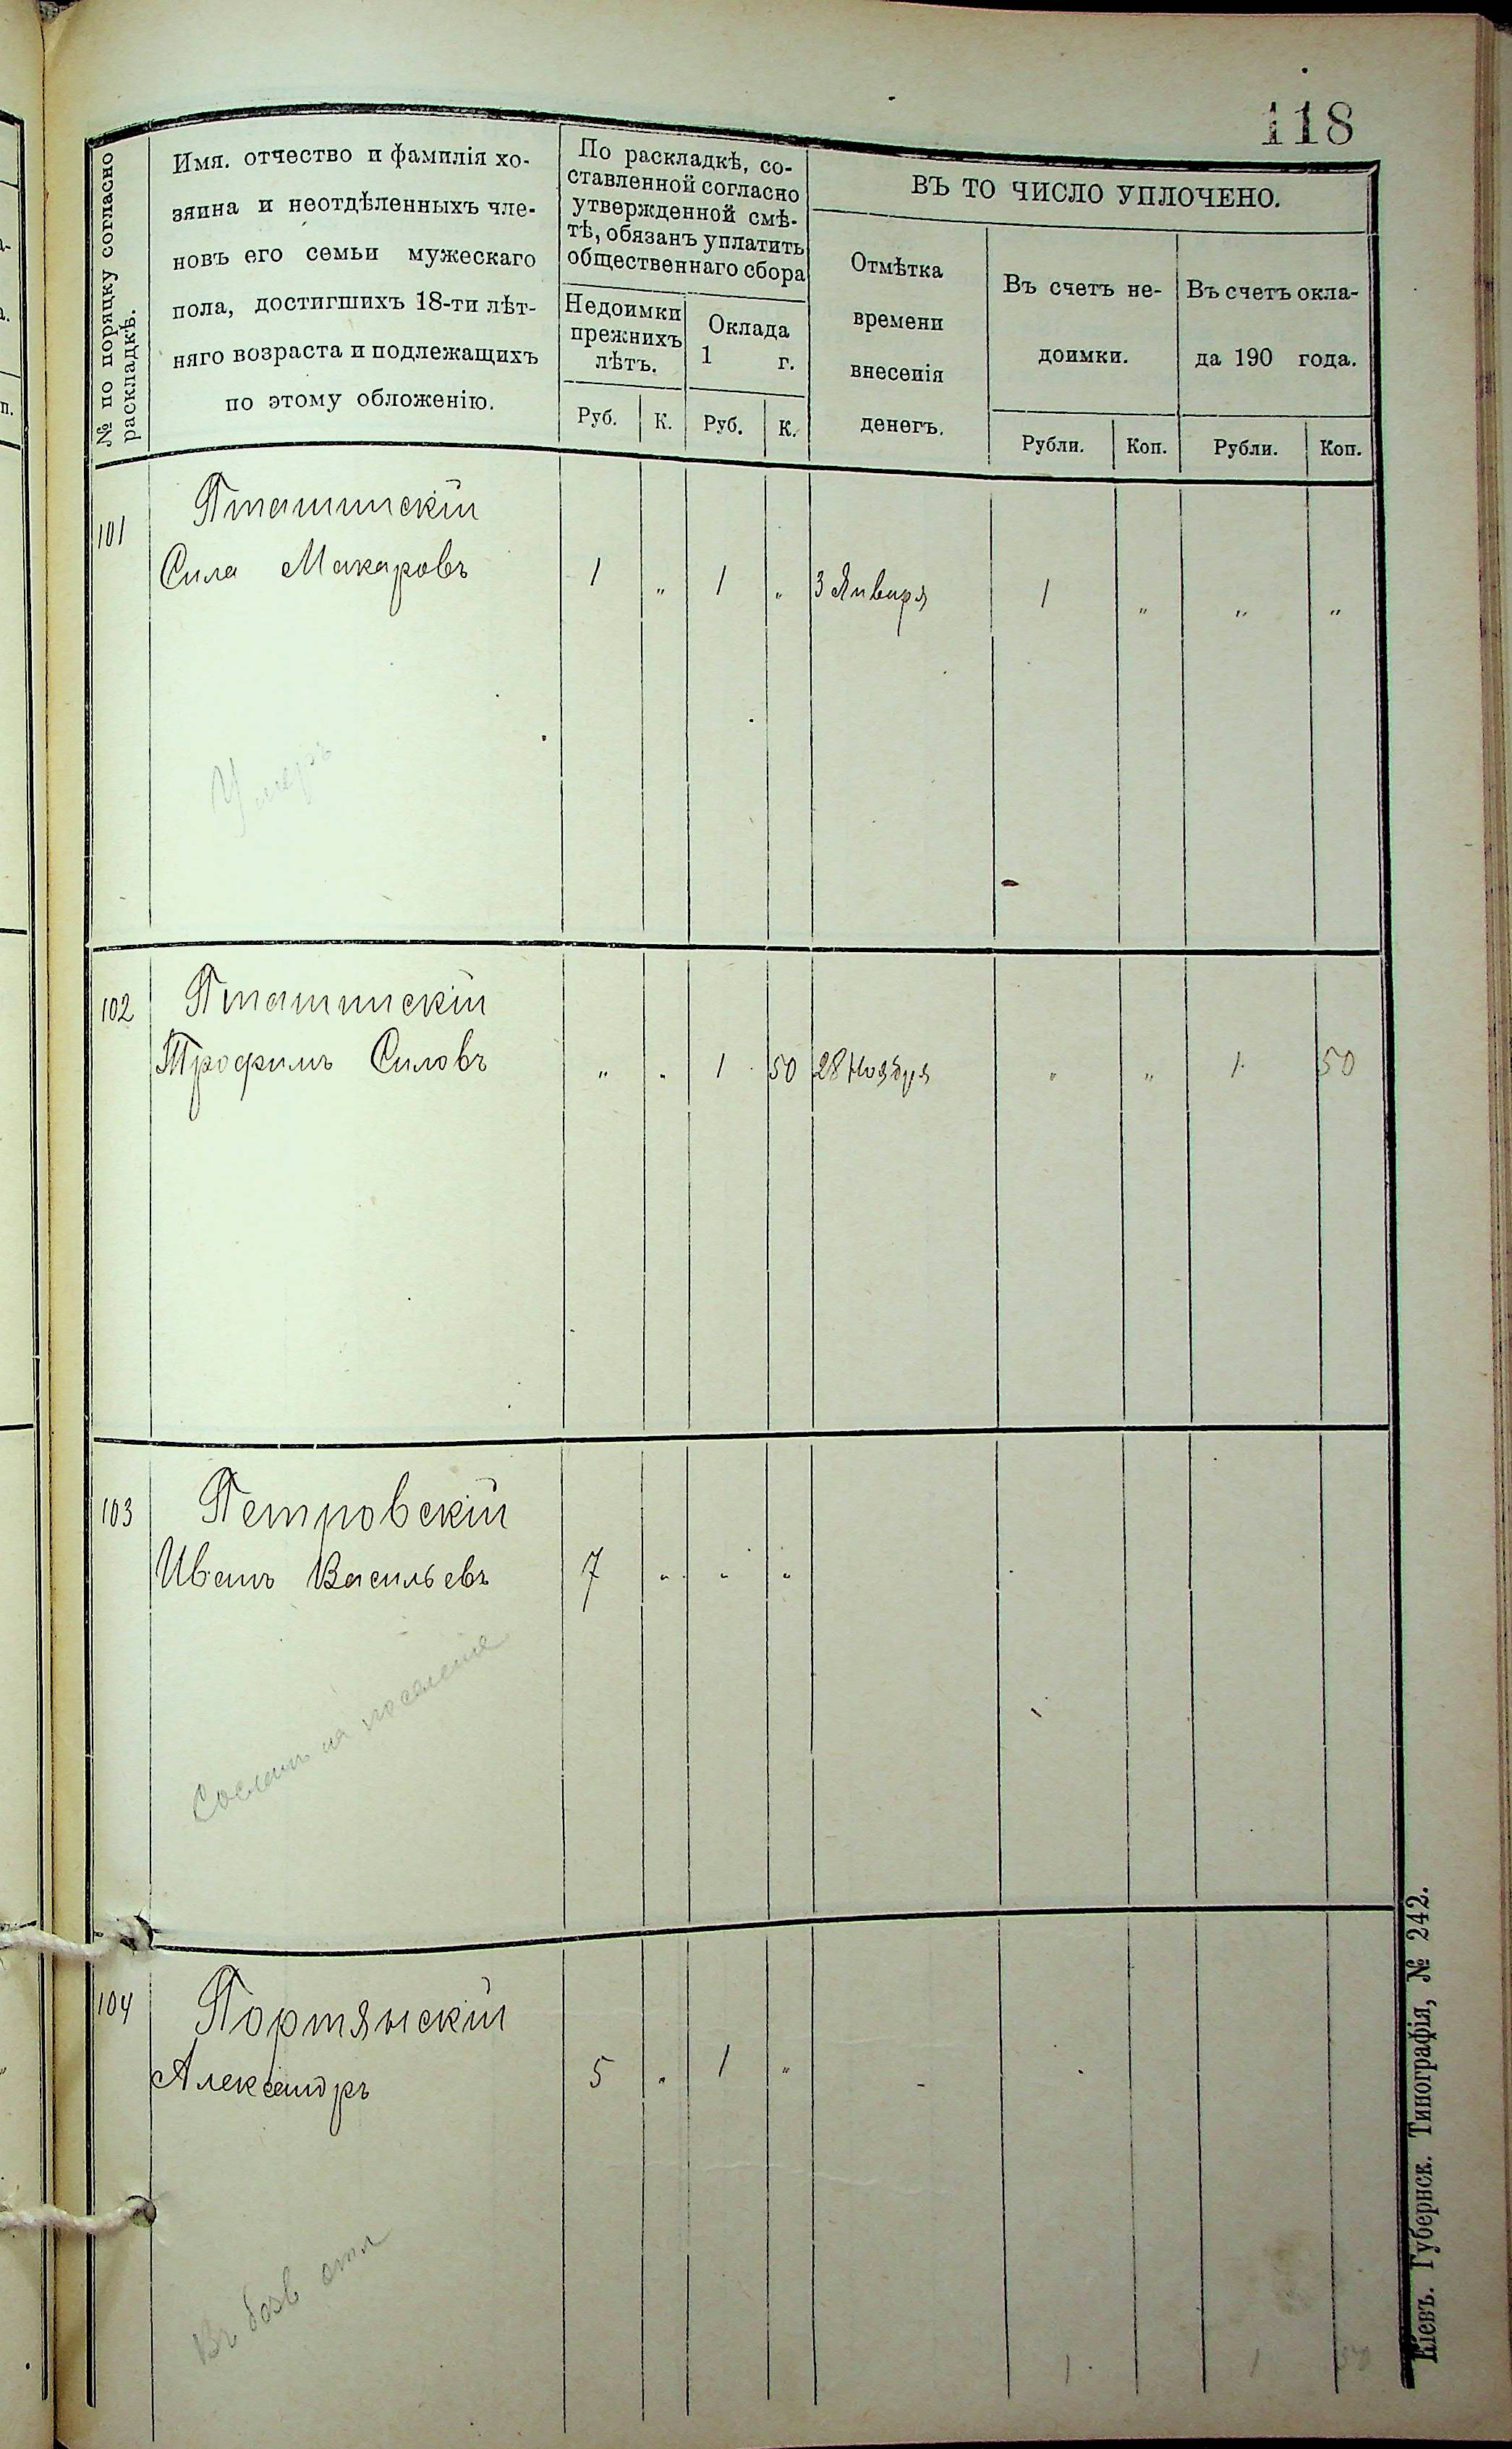 118
№ по порядку согласно
раскладкѣ.
Имя. отчество и фамилія хо-
зяина и неотдѣленныхъ чле-
новъ его семьи мужескаго
пола, достигшихъ 18-ти лѣт-
няго возраста и подлежащихъ
по этому обложенію.
По раскладкѣ, со-
ставленной согласно
утвержденной смѣ-
тѣ, обязанъ уплатить
общественнаго сбора
Недоимки
прежнихъ
лѣтъ.
Оклада
1 г.
ВЪ ТО ЧИСЛО УПЛОЧЕНО.
Отмѣтка
времени
внесенія
денегъ.
Въ счетъ не-
доимки.
Въ счетъ окла-
да 190 года.
Руб. К. Руб. К. Рубли. Коп. Рубли. Коп.
Пташинскій
101
Сила Макаровъ 1 " 1 " 3 Января 1 " " "
Умеръ
102 Пташинскій
Трофимъ Силовъ " " 1 50 28 Ноября " " 1 50
103 Петровскій
Иванъ Васильевъ 7 " " "
Сосланъ на поселеніе
104 Портянскій
Александръ 5 " 1 "
Въ безв отл
1 1 50
Кіевъ. Губернск. Типографія, № 242.